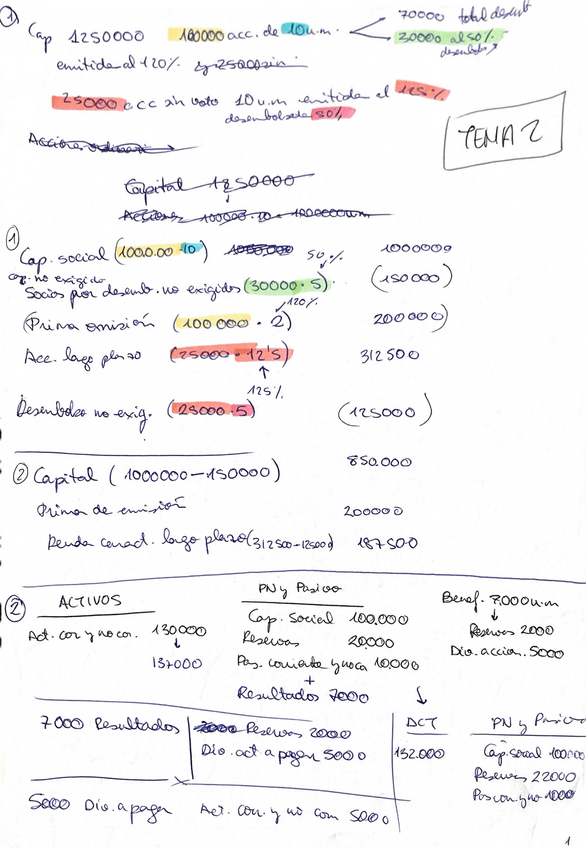 1)
Cap 1250000 100000 acc. de 10 u.m. 70000 total desemb
30000 al 50%
desembols
emitida al 120%
25000 acc sin voto 10 u.m emitida al 125%
desembolsada 50%
TEMA 2
Capital 1250000
Acciones 100000·10 = 1000000um
1)
Cap. social (100.000·10) 1000000
50%
cap. no exigido
Socios por desemb. no exigidos (30000·5) (150000)
120%
(Prima emisión (100000·2) 200000)
Acc. largo plazo (25000·12'5) 312500
125%
Desembolso no exig. (25000·5) (125000)
2) Capital (1000000-150000) 850.000
Prima de emisión 200000
Deuda caract. largo plazo (312500-125000) 187500
2)
ACTIVOS
Act. cor y no cor. 130000
137000
PN y Pasivo
Cap. Social 100.000
Reservas 20000
Pas. corriente y no co 10,000
+
Resultados 7000
Benef. 7.000 u.m
Reservas 2000
Div. accion. 5000
7000 Resultados Reservas 2000
Div. act a pagar 5000
5000 Div. a pagar Act. cor. y no corr 5000
ACT
132.000
PN y Pasivo
Cap. social 100000
Reservas 22000
Pas cor. y no 1000
1